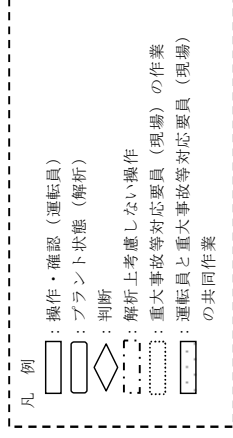 凡 例
：操作・確認（運転員）
：プラント状態（解析）
：判断
：解析上考慮しない操作
：重大事故等対応要員（現場）の作業
：運転員と重大事故等対応要員（現場）
の共同作業